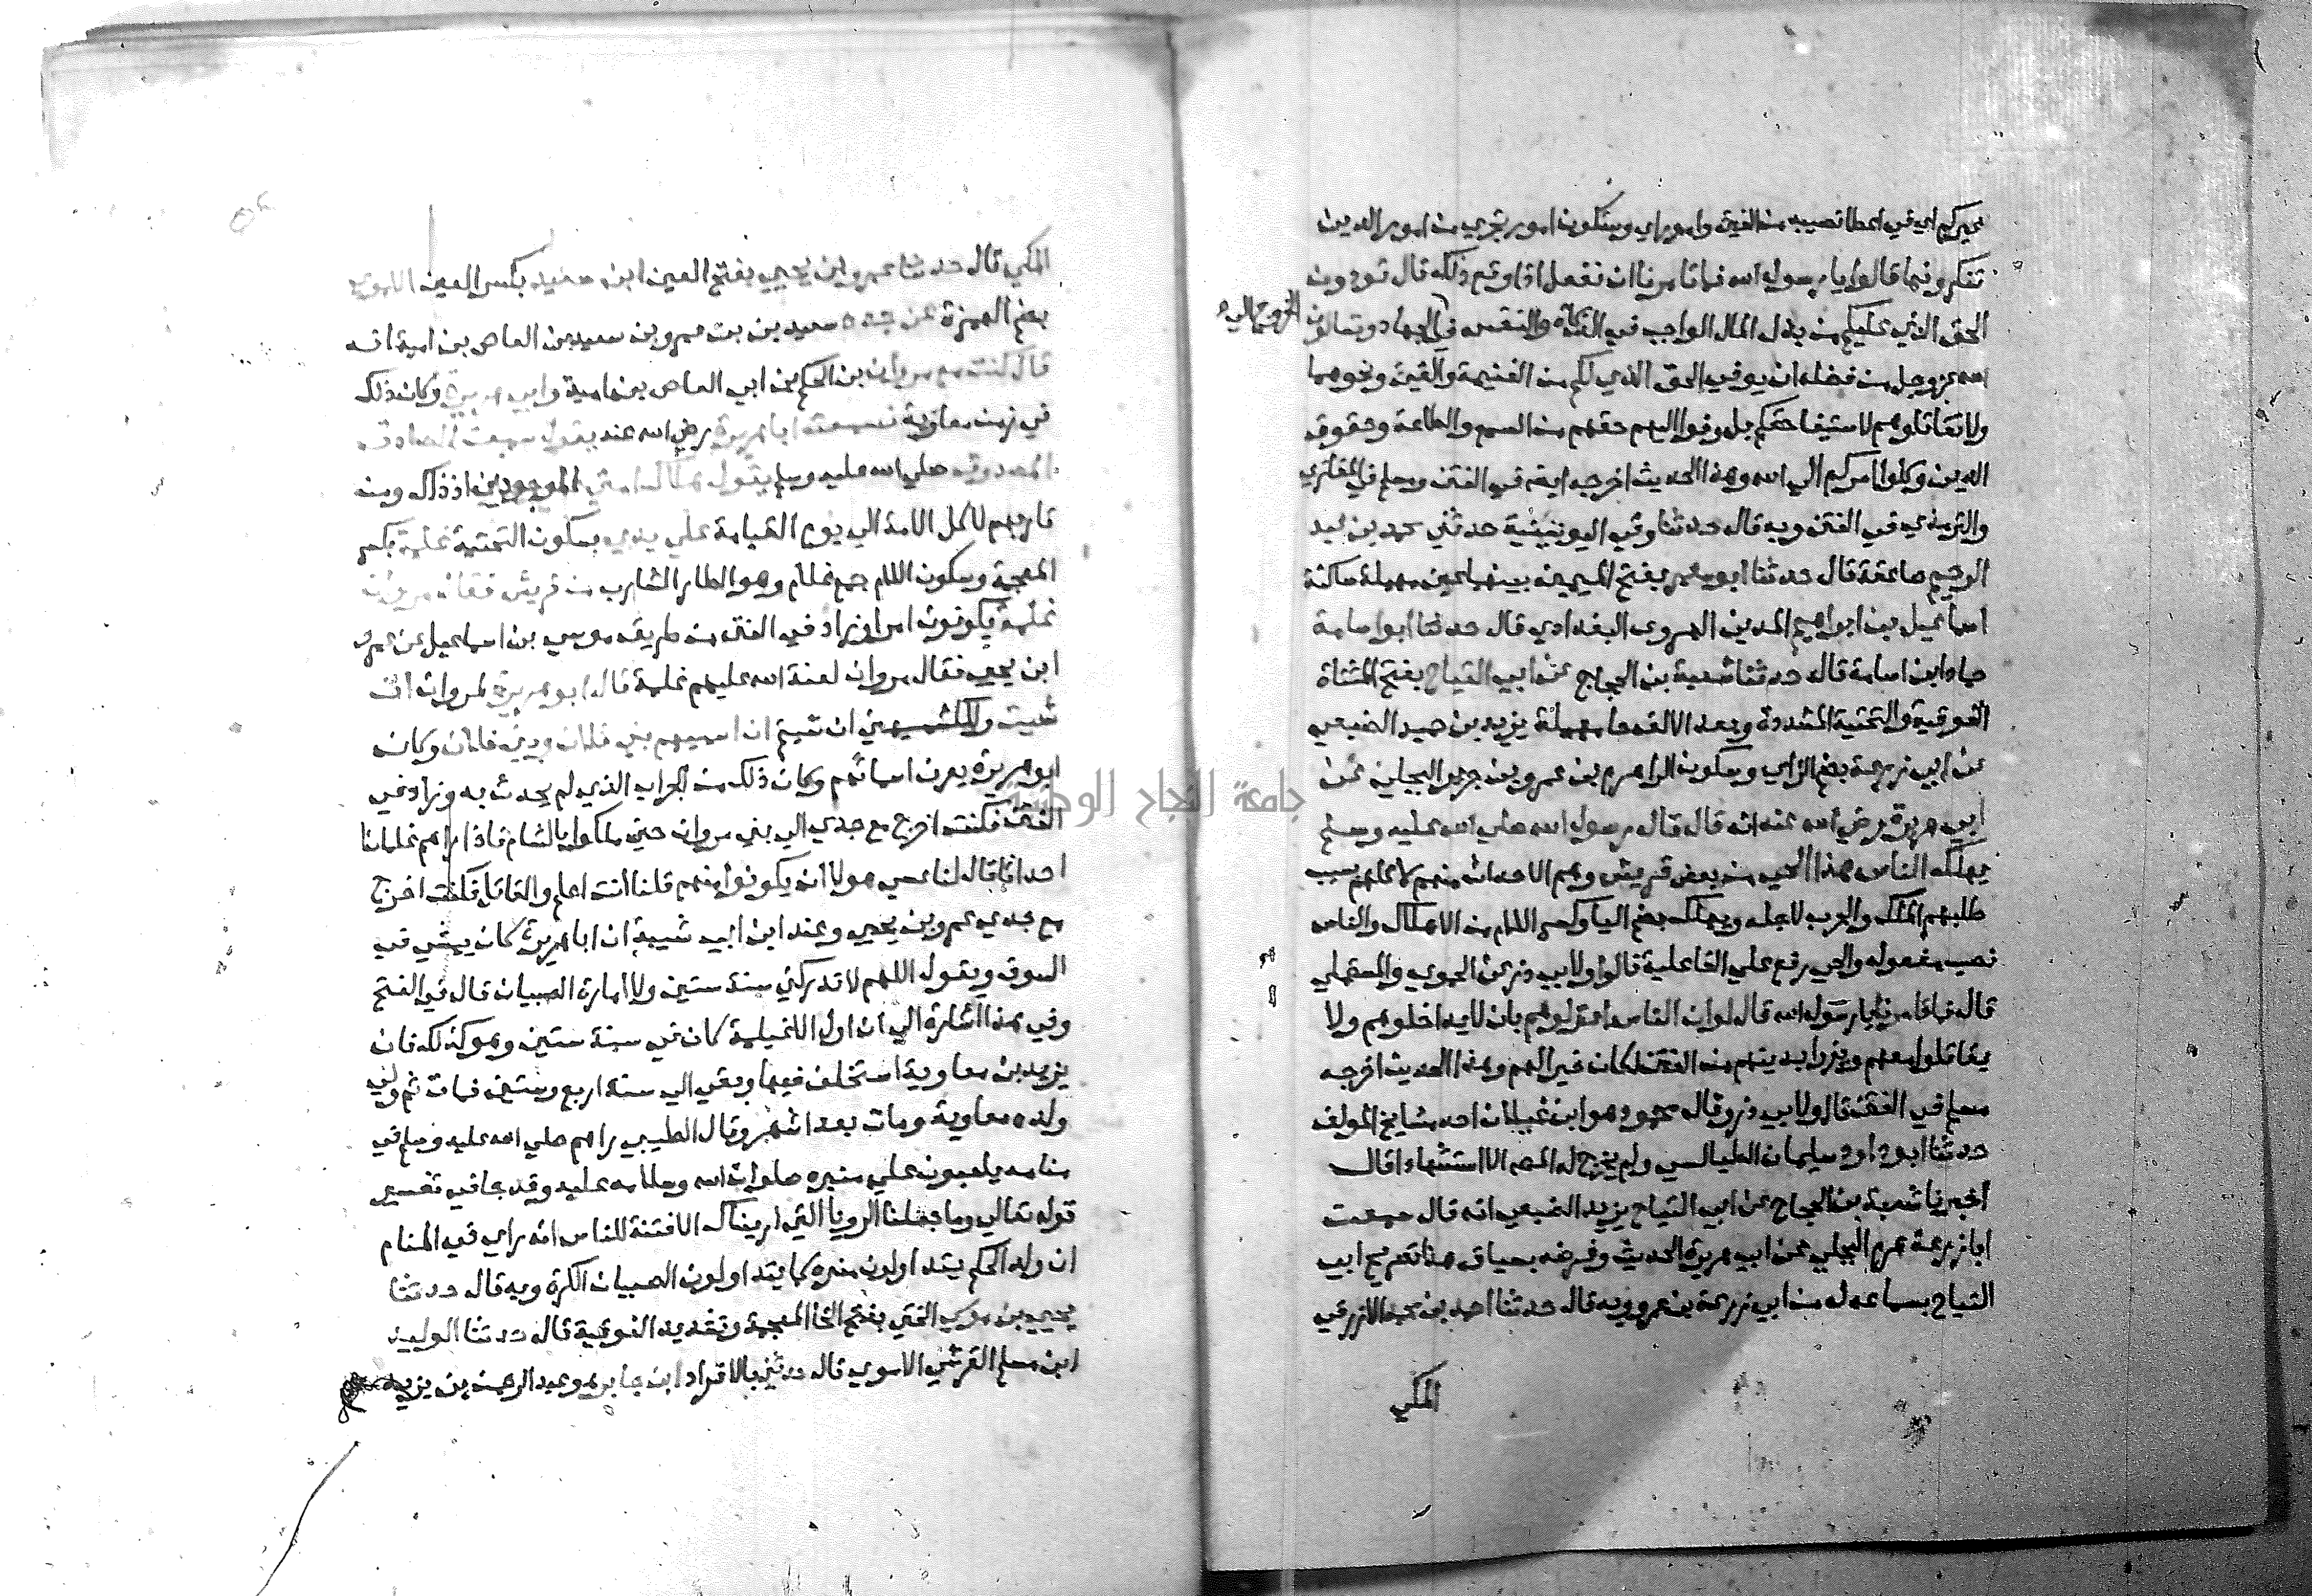 غيركم اي في اعطا نصيبه من الفيئ واموراي وستكون امور تجري من امور الدين
تنكرونها قالوا يا رسول الله فما تامرنا ان نفعل اذا وقع ذلك قال تودون
الحق الذي عليكم من بذل المال الواجب في الزكاة والنفس في الخروج الي الجهاد وتسالون
الله عز وجل من فضله ان يوفي الحق الذي لكم من الغنيمة والفيئ ونحوهما
ولا تقاتلوهم لاستيفا حقكم بل وفوا اليهم حقهم من السمع والطاعة وحقوق
الدين وكلوا امركم الي الله وهذا الحديث اخرجه ايضا في الفتن ومسلم في المغازي
والترمذي في الفتن وبه قال حدثنا وفي اليونينية حدثني محمد بن عبد
الرحيم صاعقة قال حدثنا ابو معمر بفتح الميمين بينهما عين مهملة ساكنة
اسماعيل بن ابراهيم المدين الهروي البغدادي قال حدثنا ابو اسامة
حماد ابن اسامة قال حدثنا شعبة بن الحجاج عن ابي التياح بفتح المثناة
الفوقية والتحتية المشددة وبعد الالف حا مهملة يزيد بن حميد الضبعي
عن ابي زرعة بضم الزاي وسكون الرا هرم بن عمرو بن جرير البجلي عن
ابي هريرة رضي الله عنه انه قال قال رسول الله صلي الله عليه وسلم
يهلك الناس هذا الحي من بعض قريش وهم الاحداث منهم لا كلهم بسبب
طلبهم الملك والحرب لاجله ويهلك بضم اليا وكسر اللام من الاهلاك والناس
نصب مفعوله والحي رفع علي الفاعلية قالوا ولابي ذر عن الحموي والمستملي
قال فما تامرنا يا رسول الله قال لو ان الناس اعتزلوهم بان لا يداخلوهم ولا
يقاتلوا معهم ويفروا بدينهم من الفتن لكان خيرا لهم وهذا الحديث اخرجه
مسلم في الفتن قال ولابي ذر وقال محمود هو ابن غيلان احد مشايخ المولف
حدثنا ابو داود سليمان الطيالسي ولم يخرج له المص الا استشهادا قال
اخبرنا شعبة بن الحجاج عن ابي التياح يزيد الضبعي انه قال سمعت
ابا زرعة هرم البجلي عن ابي هريرة الحديث وغرضه بسياق هذا تصريح ابي
التياح بسماعه له من ابي زرعة بن عمرو وبه قال حدثنا احمد بن محمد الازرقي
المكي
المكي قال حدثنا عمرو بن يحيي بفتح العين ابن سعيد بكسر العين الاموي
بضم الهمزة عن جده سعيد بن بت عمرو بن سعيد بن العاص بن امية انه
قال كنت مع مروان بن الحكم بن ابي العاص بن امية وابي هريرة وكان ذلك
في زمن معاوية فسمعت ابا هريرة رضي الله عنه يقول سمعت الصادق
المصدوق صلي الله عليه وسلم يقول هلاك امتي الموجودين اذ ذاك ومن
قاربهم لا كل الامة الي يوم القيامة علي يدي بسكون التحتية غلمة بكسر
المعجمة وسكون اللام جمع غلام وهو الطار الشارب من قريش فقال مروان
غلمة يكونون امرا وزاد في الفتن من طريق موسي بن اسماعيل عن عمرو
ابن يحيي فقال مروان لعنة الله عليهم غلمة قال ابو هريرة لمروان ان
شيت ان تسيع ان اسميهم بني فلان وبني فلان وكان
ابو هريرة يعرف اسمائهم وكان ذلك من الجراب الذي لم يحدث به وزاد في
الفتن فكنت اخرج مع جدي الي بني مروان حين ملكوا بالشام فاذا راهم غلمانا
احداثا قال لنا عسي هولا ان يكونوا منهم قلنا انت اعلم والقائل فكنت اخرج
مع جدي عمرو بن يحيي وعند ابن ابي شيبة ان ابا هريرة كان يمشي في
السوق ويقول اللهم لا تدركني سنة ستين ولا امارة الصبيان قال في الفتح
وفي هذا اشارة الي ان اول الاغيلمة كان في سنة ستين وهو كذلك فان
يزيد بن معاوية استخلف فيها وبقي الي سنة اربع وستين فمات ثم ولي
ولده معاوية ومات بعد اشهر وقال الطيبي راهم صلي الله عليه وسلم في
منامه يلعبون علي منبره صلوات الله وسلامه عليه وقد جا في تفسير
قوله تعالي وما جعلنا الرويا التي اريناك الا فتنة للناس انه راي في المنام
ان ولد الحكم يتداولون منبره كما يتداولون الصبيان الكرة وبه قال حدثنا
يحيي بن موسي الختي بفتح الخا المعجمة وتشديد الفوقية قال حدثنا الوليد
ابن مسلم القرشي الاموي قال حدثني بالافراد ابن جابر هو عبد الرحمن بن يزيد
جامعة النجاح الوطنية